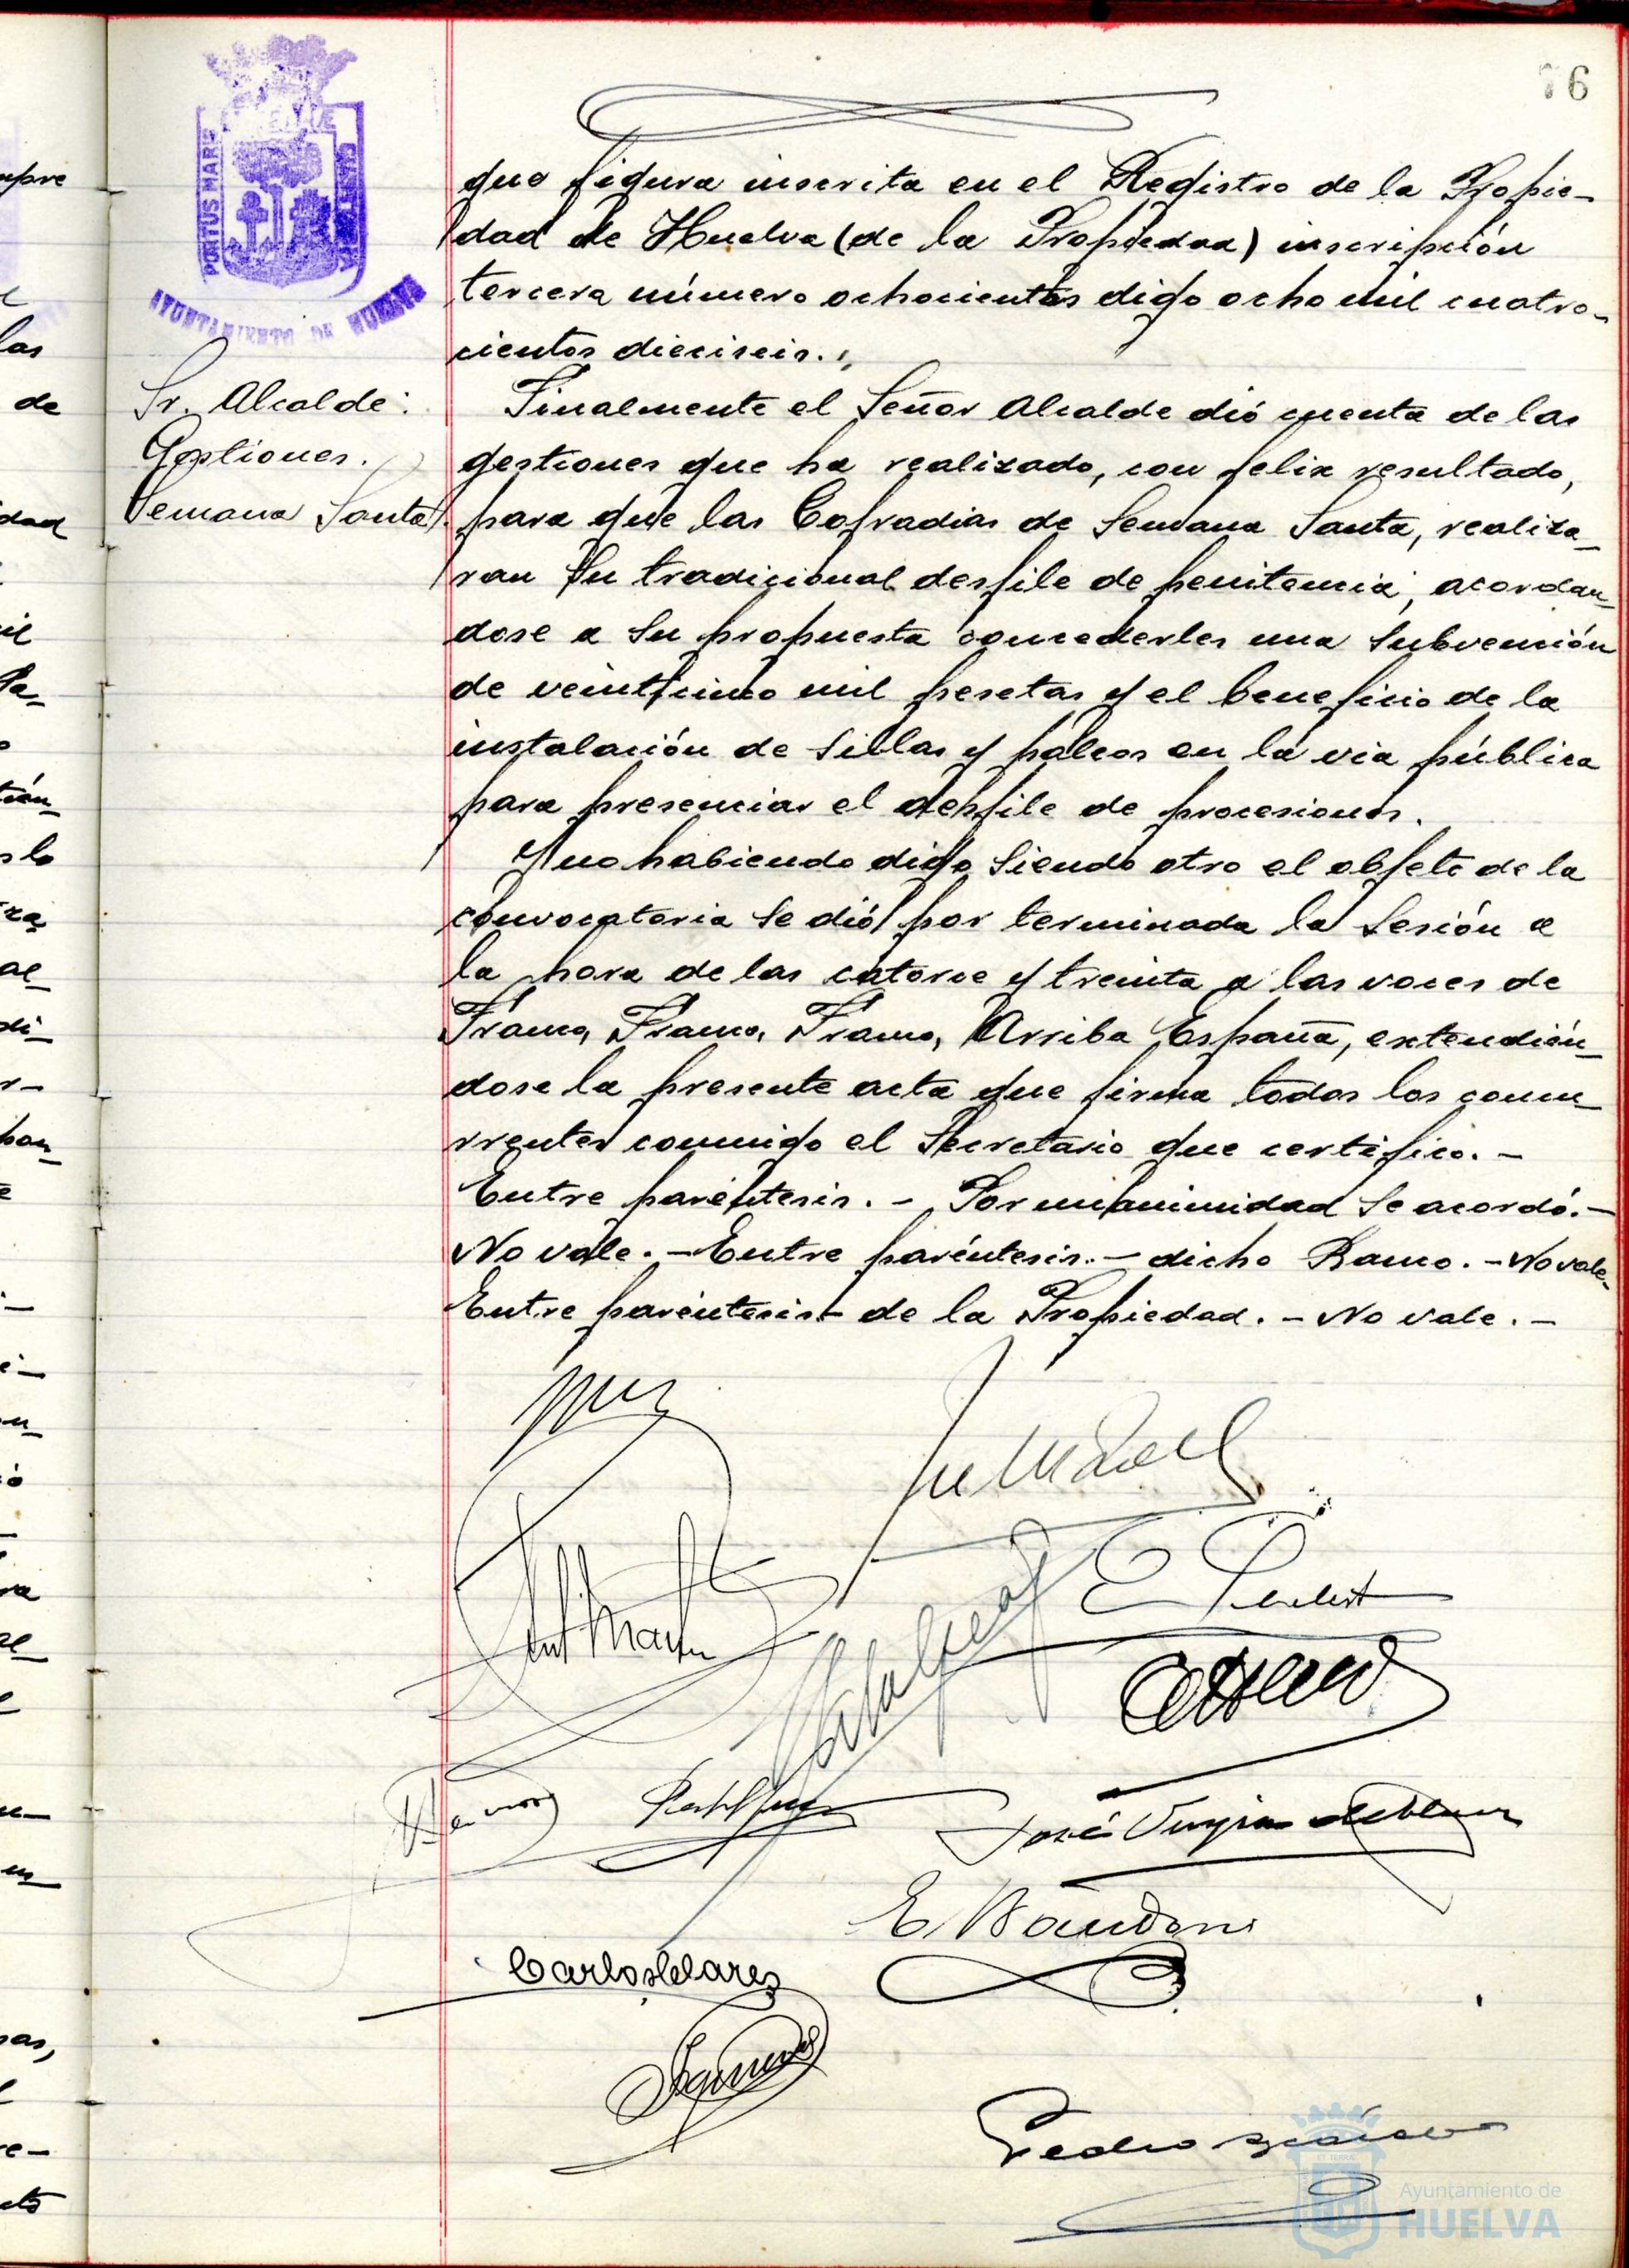 76
PORTUS MARIS
AYUNTAMIENTO DE HUELVA
que figura inscrita en el Registro de la Propie-
dad de Huelva (de la Propiedad) inscripción
tercera número ochocientos digo ocho mil cuatro-
cientos dieciseis.
Sr. Alcalde:
Gestiones.
Semana Santa.
Finalmente el Señor Alcalde dió cuenta de las
gestiones que ha realizado, con feliz resultado,
para que las Cofradias de Semana Santa, realiza-
ran su tradicional desfile de penitencia, acordan-
dose a su propuesta concederles una subvención
de veinticinco mil pesetas y el beneficio de la
instalación de sillas y palcos en la via pública
para presenciar el desfile de procesiones.
Y no habiendo digo siendo otro el objeto de la
convocatoria se dió por terminada la sesión a
la hora de las catorce y treinta a las voces de
Franco, Franco, Franco, Arriba España, extendién-
dose la presente acta que firma todos los concu-
rrentes conmigo el Secretario que certifico. -
Entre paréntesis. - Por unanimidad se acordó. -
No vale. - Entre paréntesis. - dicho Ramo. - No vale.
Entre paréntesis - de la Propiedad. - No vale. -
José
E.
Carlos
Pedro
Ayuntamiento de
HUELVA